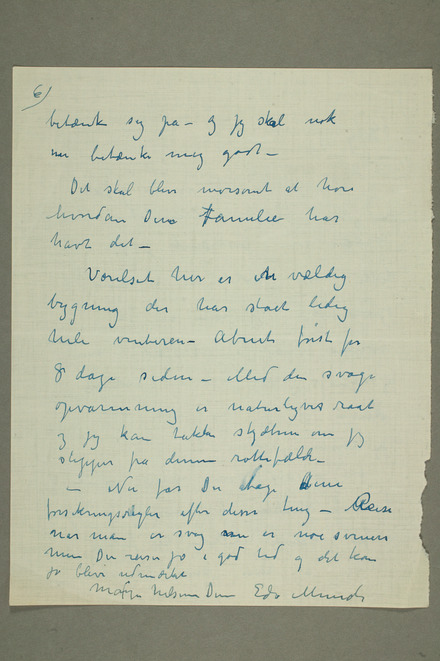 6)
betænke sig på – og jeg skal nok
nu betænke mig godt –
Det skal blive morsomt at høre
hvordan Deres Familie har
havt det –
Værelset her er en vældig
bygning der har stået ledig
hele vinteren – Åbnet først for
8 dage siden – Med den svage
opvarmning er naturligvis rått
og jeg kan takke skjæbnen om jeg
slipper fra denne rottefælde –
– Nu får De tage Deres
forsikringsregler efter disse ting – Reise
når man er svag er noe
men De reiser jo i god tid og det kan
jo blive udmærket
Mange hilsener Deres Edv Munch